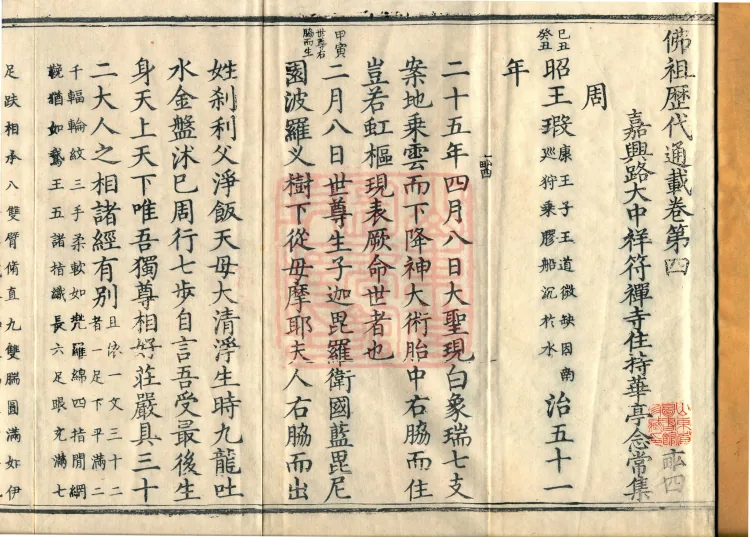 佛祖歷代通載卷第四
嘉興路大中祥符禪寺住持華亭念常集
周
己丑
癸丑
昭王瑕康王子王道微缺因南
巡狩乘膠船沉於水
治五十一
年
二十五年四月八日大聖現白象瑞七支
案地乘雲而下降神大術胎中右脇而住
豈若虹樞現表厥命世者也
甲寅
世尊右
脇而生
二月八日世尊生子迦毘羅衛國藍毘尼
園波羅义樹下從母摩耶夫人右脇而出
姓剎利父淨飯天母大清淨生時九龍吐
水金盤沭巳周行七步自言吾受最後生
身天上天下唯吾獨尊相好莊嚴具三十
二大人之相諸經有別且依一文三十二
者一足下平滿二
千輻輪紋三手柔軟如兜羅綿四指間網
鞔猶如鵞王五諸指纖長六足眼充滿七
足趺相承八雙臂脩直九雙腨圓滿如伊